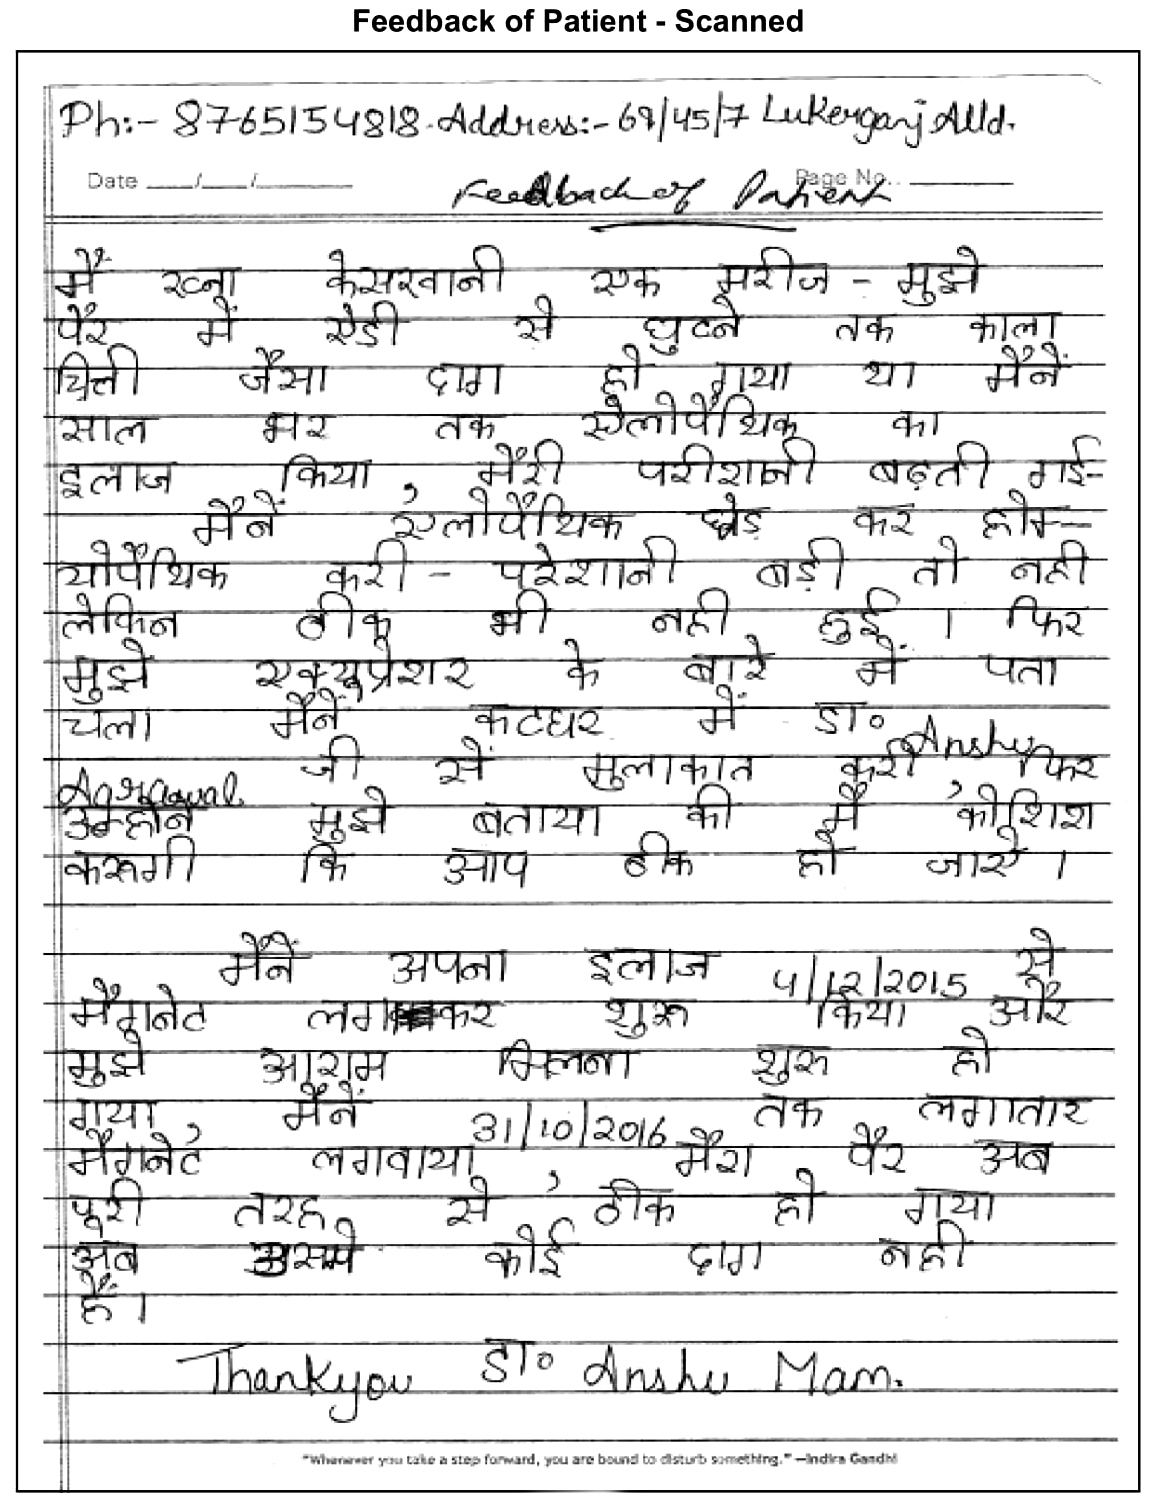 Feedback of Patient - Scanned
Ph:- 8765154818. Address:- 69/45/7 Lukerganj Alld.
Date ___/___/______ Page No.. ______
Feedback of Patient
मैं रत्ना केसरवानी एक मरीज - मुझे
पैर में ऐडी से घुटने तक काला
चित्ती जैसा दाग हो गया था मैंनें
साल भर तक ऐलोपैथिक का
इलाज किया, मैंरी परीशानी बढ़ती गई-
मैंनें एलोपैथिक छोड़ कर होम-
योपैथिक करी - परेशानी बड़ी तो नही
लेकिन ठीक भी नही हुई । फिर
मुझे एक्यूप्रेशर के बारे में पता
चला मैंनें कटघर में डा० Anshu
Agrawal जी सें मुलाकात करी फिर
उन्होंने मुझे बताया की मैं कोशिश
करूगी कि आप ठीक हो जाऐ ।
मैंनें अपना इलाज 4/12/2015 से
मैगनेट लगाकर शुरू किया और
मुझे आराम मिलना शुरू हो
गया, मैंनें 31/10/2016 तक लगातार
मैगनेट लगवाया, मैरा पैर अब
पूरी तरह से ठीक हो गया
अब उसमे कोई दाग नही
हैं ।
Thankyou डा० Anshu Mam.
"Whenever you take a step forward, you are bound to disturb something." —Indira Gandhi